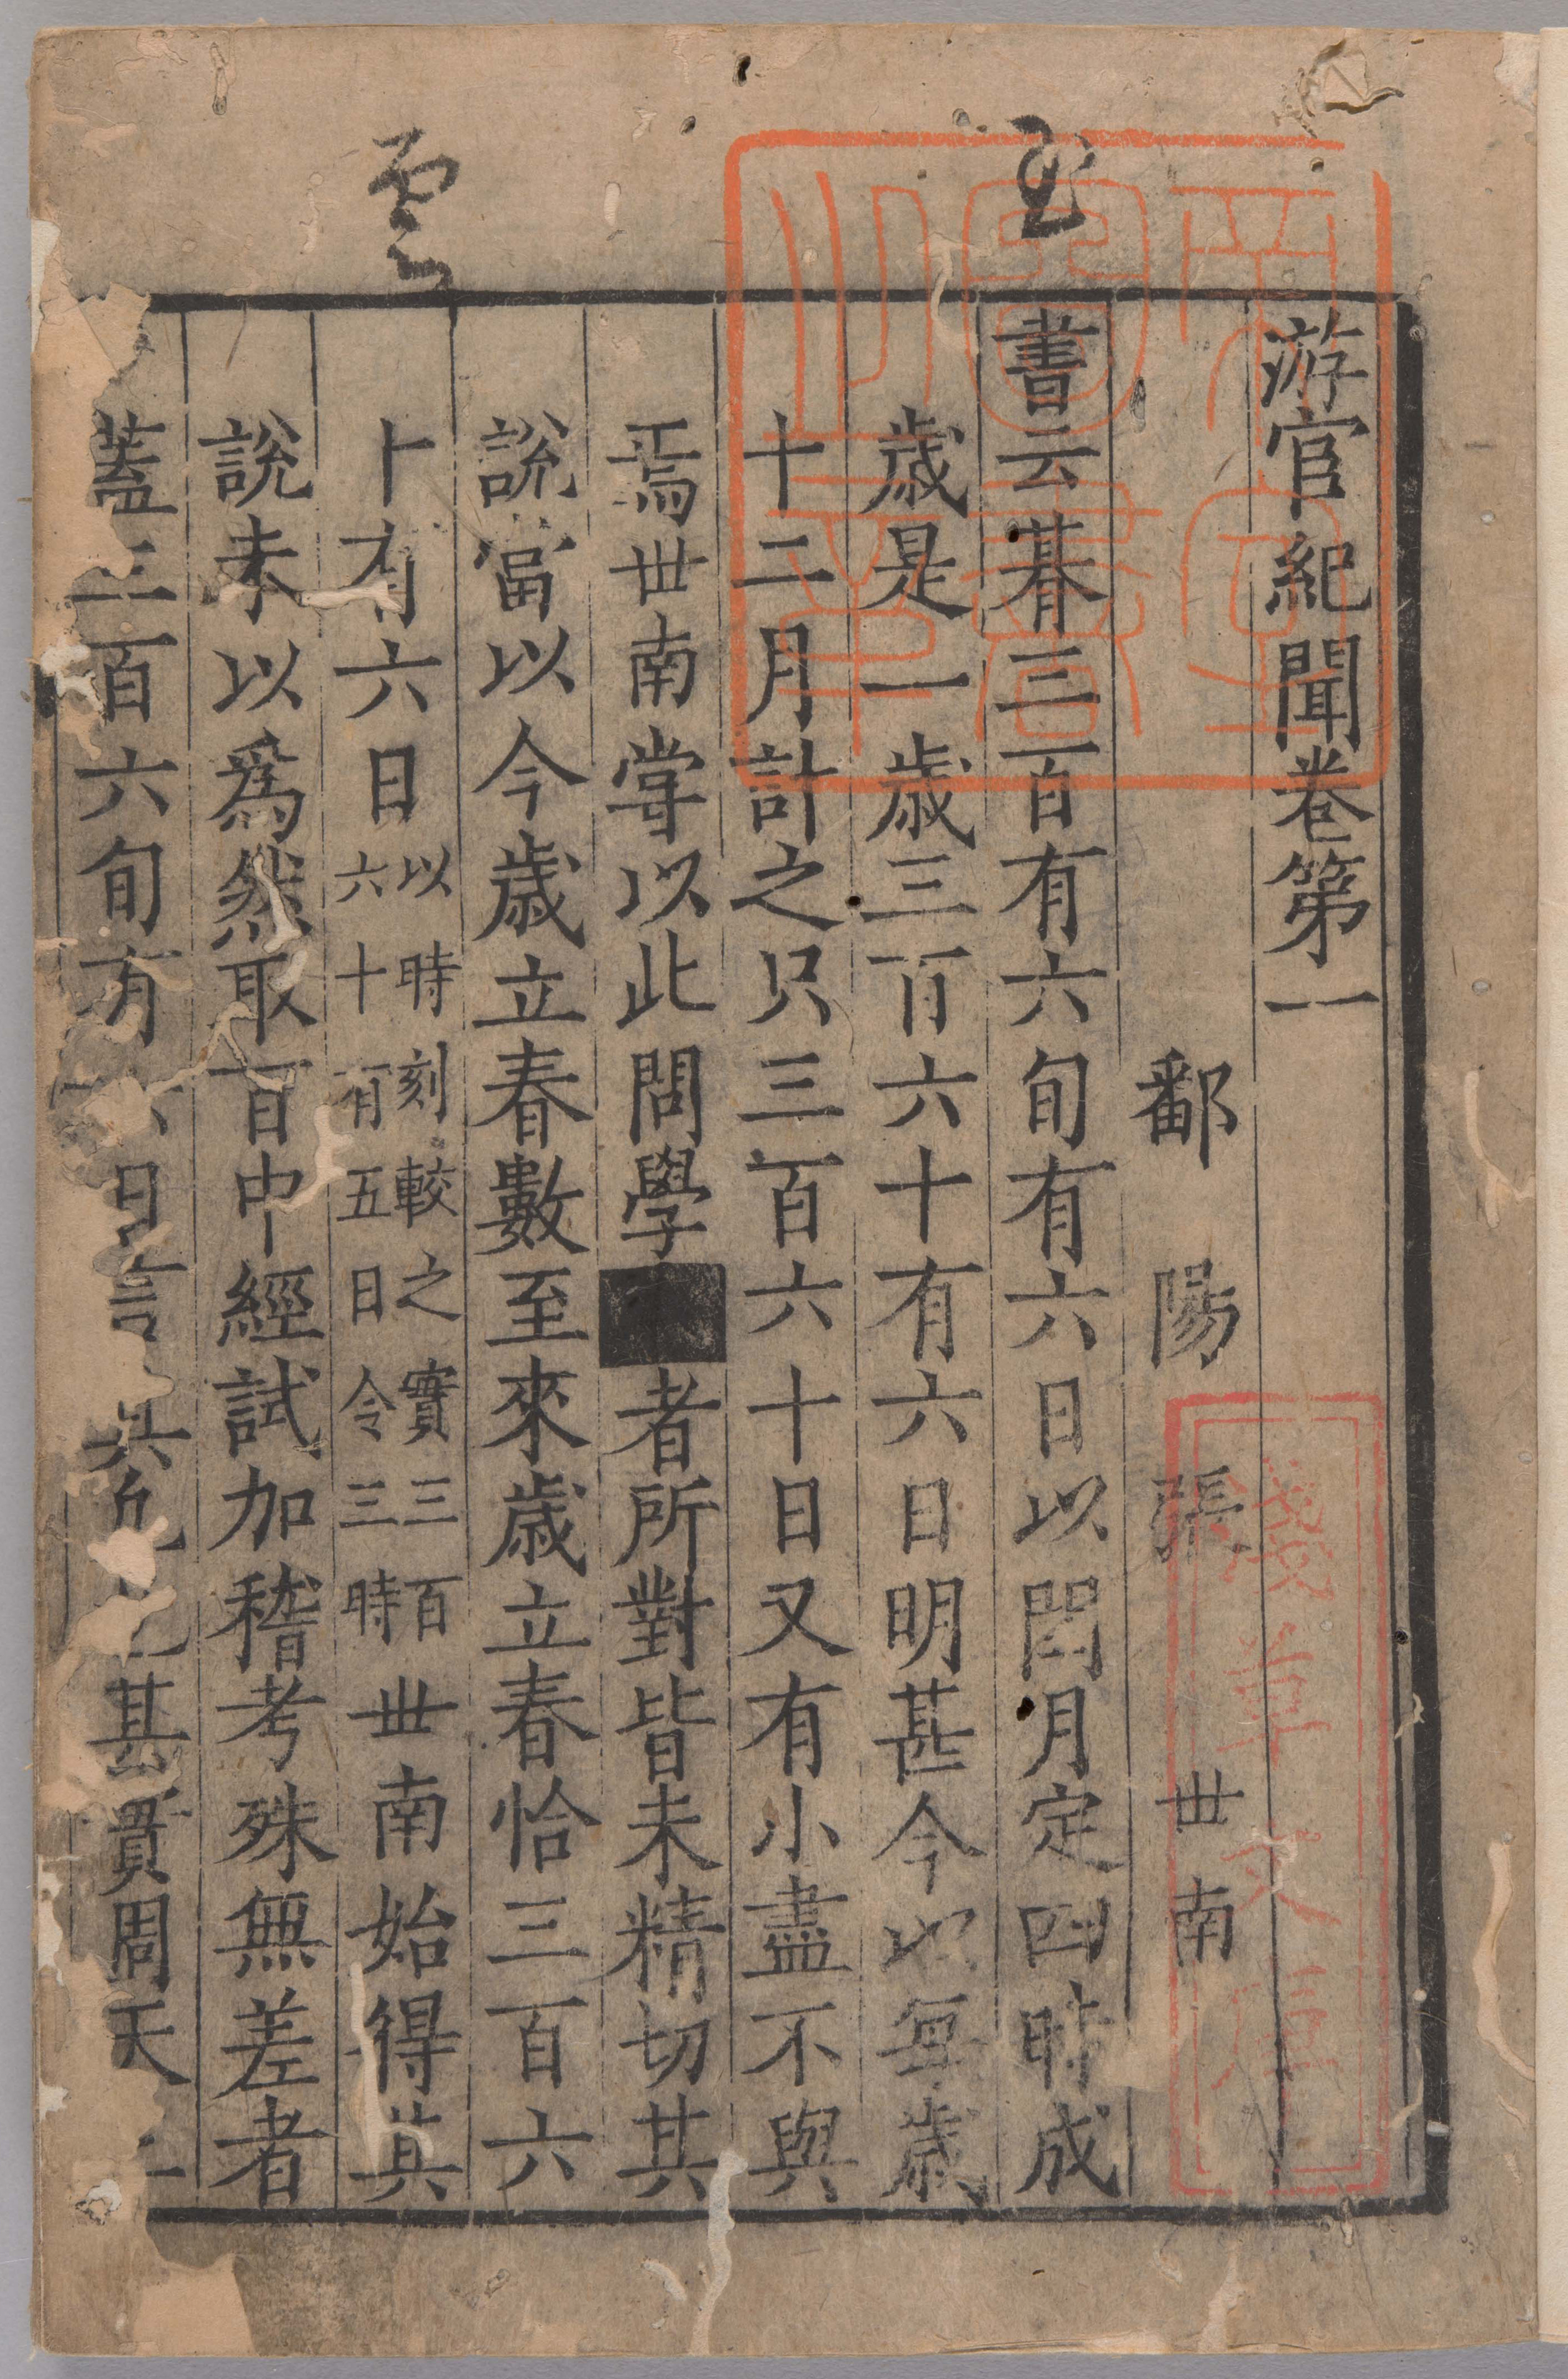 游宦紀聞卷第一
鄱陽張世南
書云朞三百有六旬有六日以閏月定四時成
歲是一歲三百六十有六日明甚今以每歲
十二月計之只三百六十日又有小盡不與
焉世南嘗以此問學者所對皆未精切其
說當以今歲立春數至來歲立春恰三百六
十有六日
以時刻較之實三百
六十有五日令三時
世南始得其
說未以爲然取百中經試加稽考殊無差者
蓋三百六旬有六日言其
其實周天